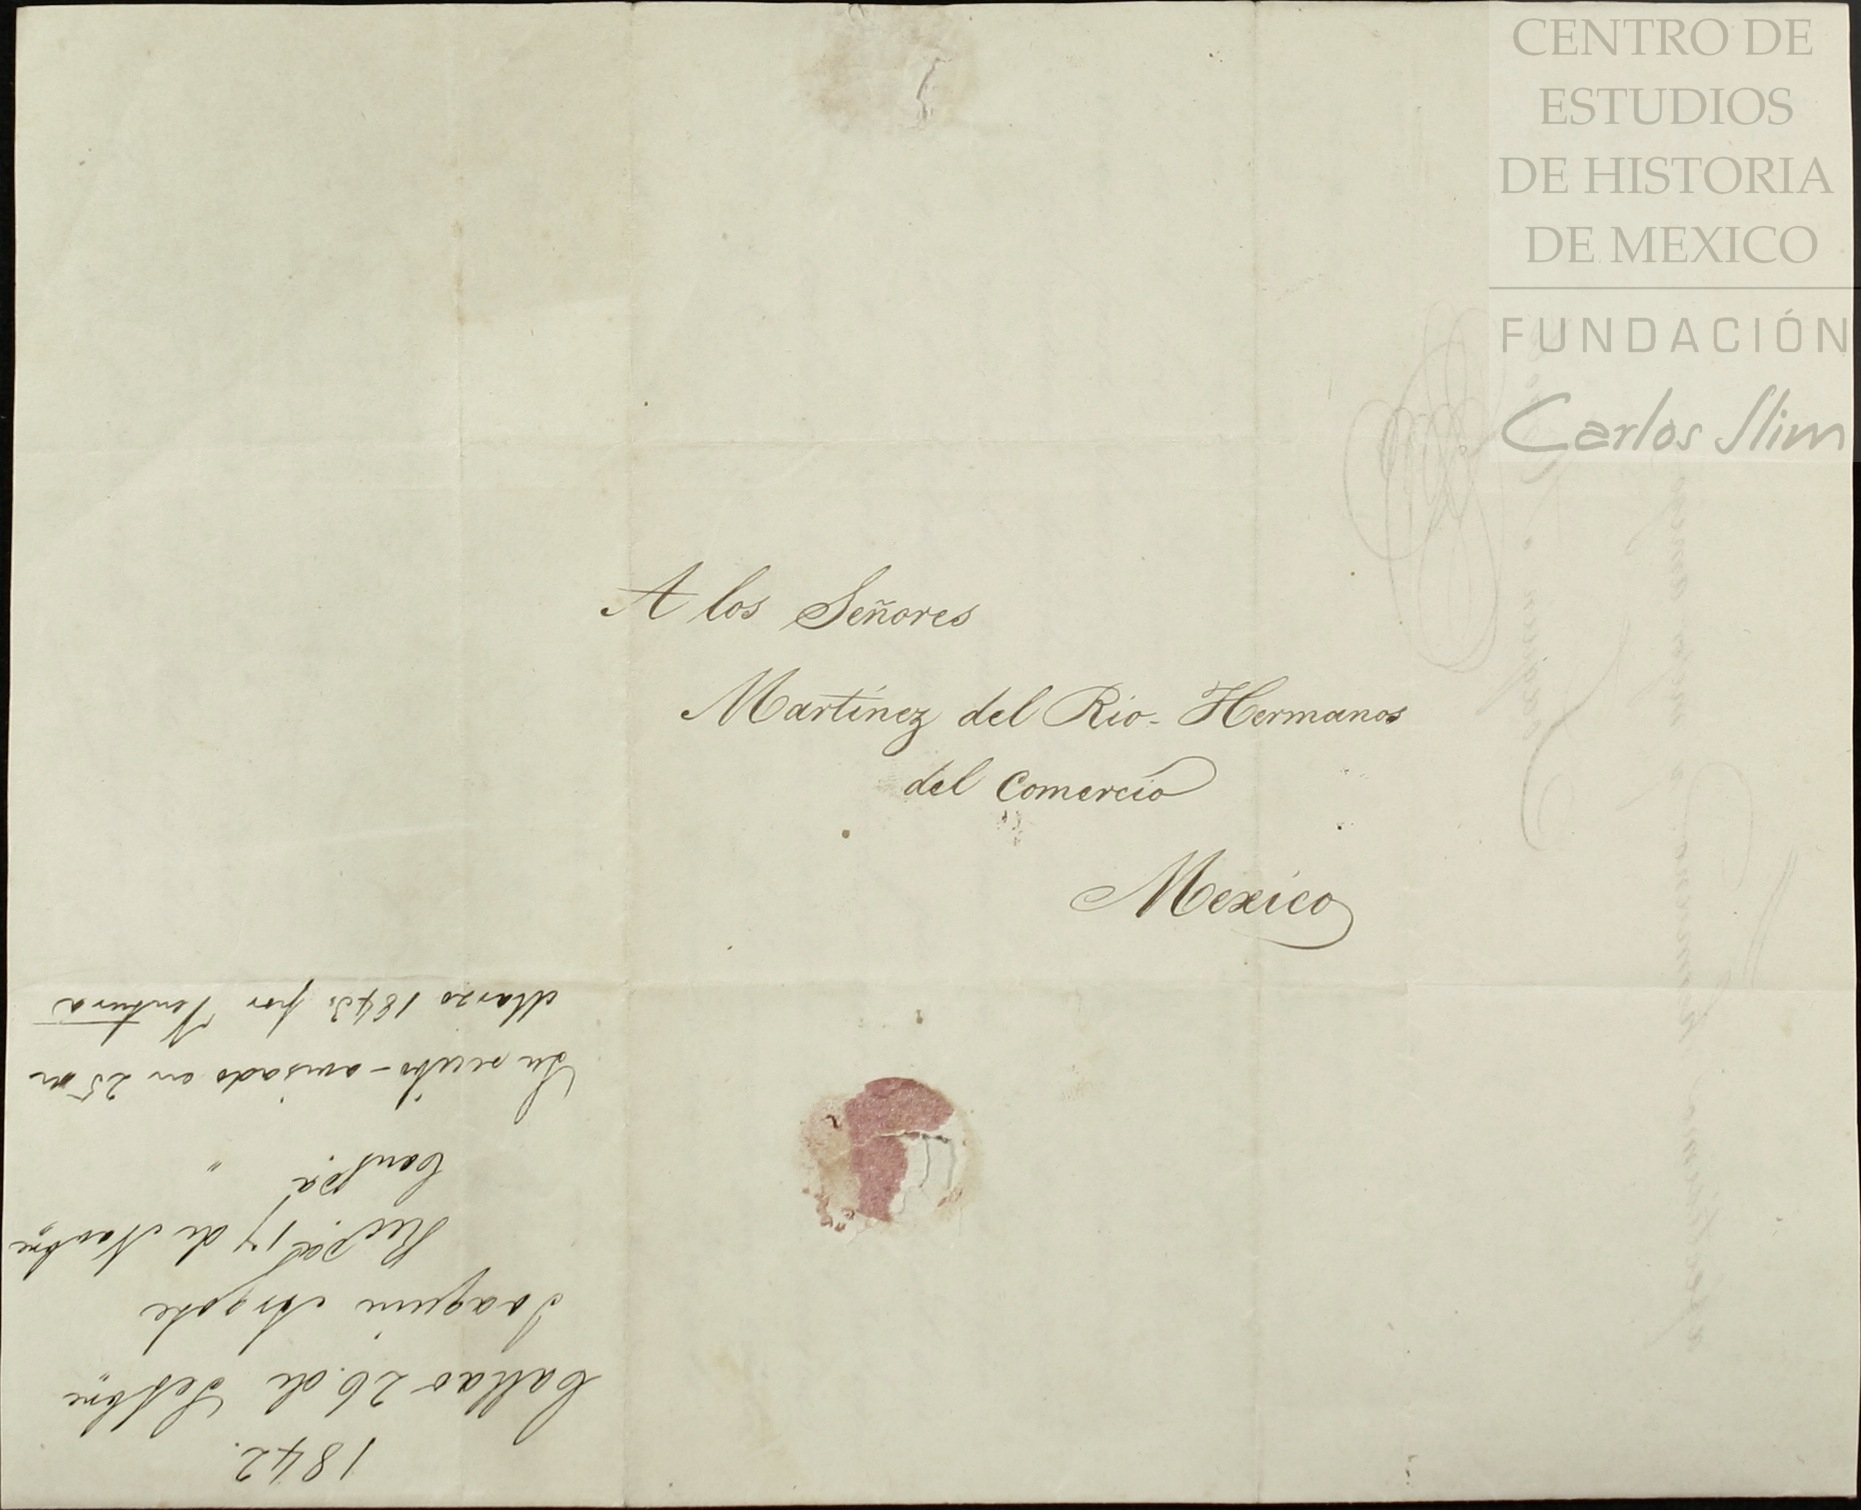 CENTRO DE
ESTUDIOS
DE HISTORIA
DE MEXICO
FUNDACIÓN
Carlos Slim
A los Señores
Martínez del Rio- Hermanos
del Comercio
Mexico
1842.
Callao 26. de Setbre
Joaquin Azgote
Rec.da 17 de Novbre
Contda "
Su recibo - avisado en 25 de
Marzo 1843. por Ventura